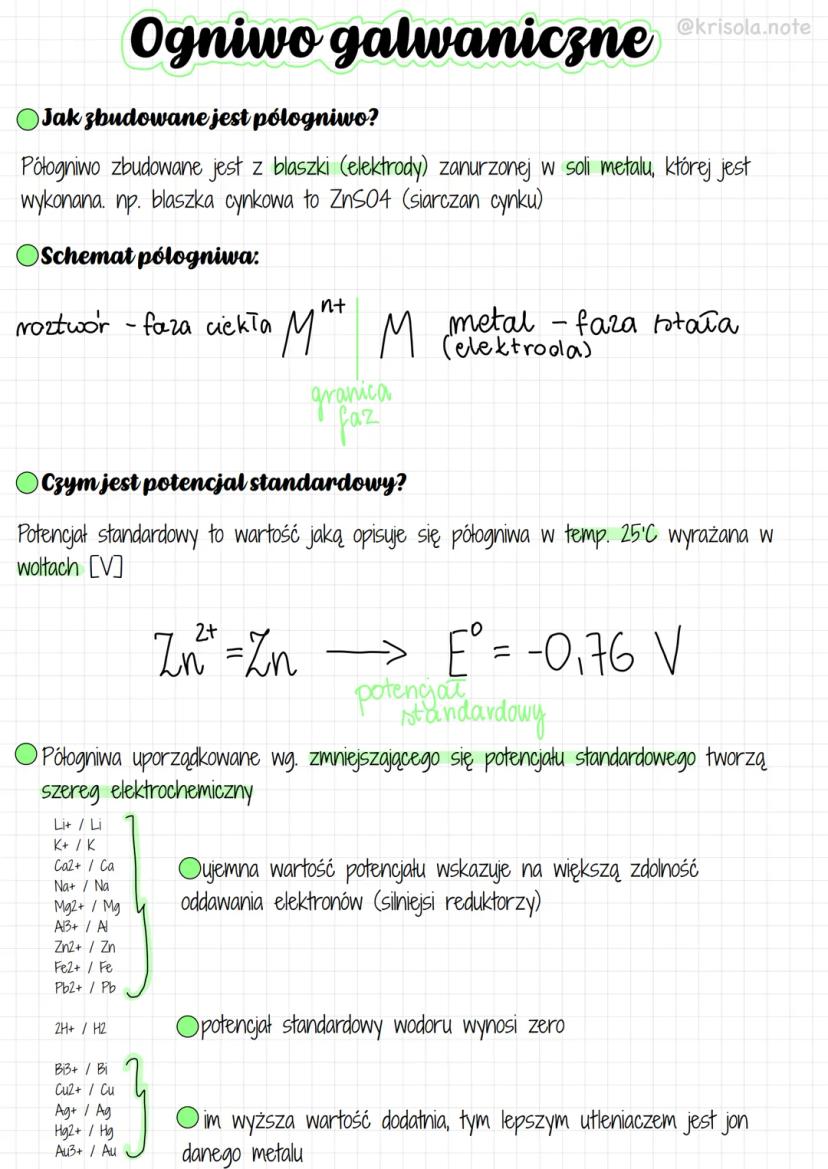 Ogniwo galwaniczne
@krisola.note
Jak zbudowane jest półogniwo?
Półogniwo zbudowane jest z blaszki (elektrody) zanurzonej w soli metalu, której jest
wykonana. np. blaszka cynkowa to ZnSO4 (siarczan cynku)
Schemat półogniwa:
roztwór - faza ciekła Mⁿ⁺ | M metal - faza stała
(elektroda)
granica
faz
Czym jest potencjał standardowy?
Potencjał standardowy to wartość jaką opisuje się półogniwa w temp. 25'C wyrażana w
woltach [V]
Zn²⁺ = Zn ⟶ E⁰ = -0,76 V
potencjał
standardowy
Półogniwa uporządkowane wg. zmniejszającego się potencjału standardowego tworzą
szereg elektrochemiczny
Li+ / Li
K+ / K
Ca2+ / Ca
Na+ / Na
Mg2+ / Mg
Al3+ / Al
Zn2+ / Zn
Fe2+ / Fe
Pb2+ / Pb
ujemna wartość potencjału wskazuje na większą zdolność
oddawania elektronów (silniejsi reduktorzy)
2H+ / H2
potencjał standardowy wodoru wynosi zero
Bi3+ / Bi
Cu2+ / Cu
Ag+ / Ag
Hg2+ / Hg
Au3+ / Au
im wyższa wartość dodatnia, tym lepszym utleniaczem jest jon
danego metalu